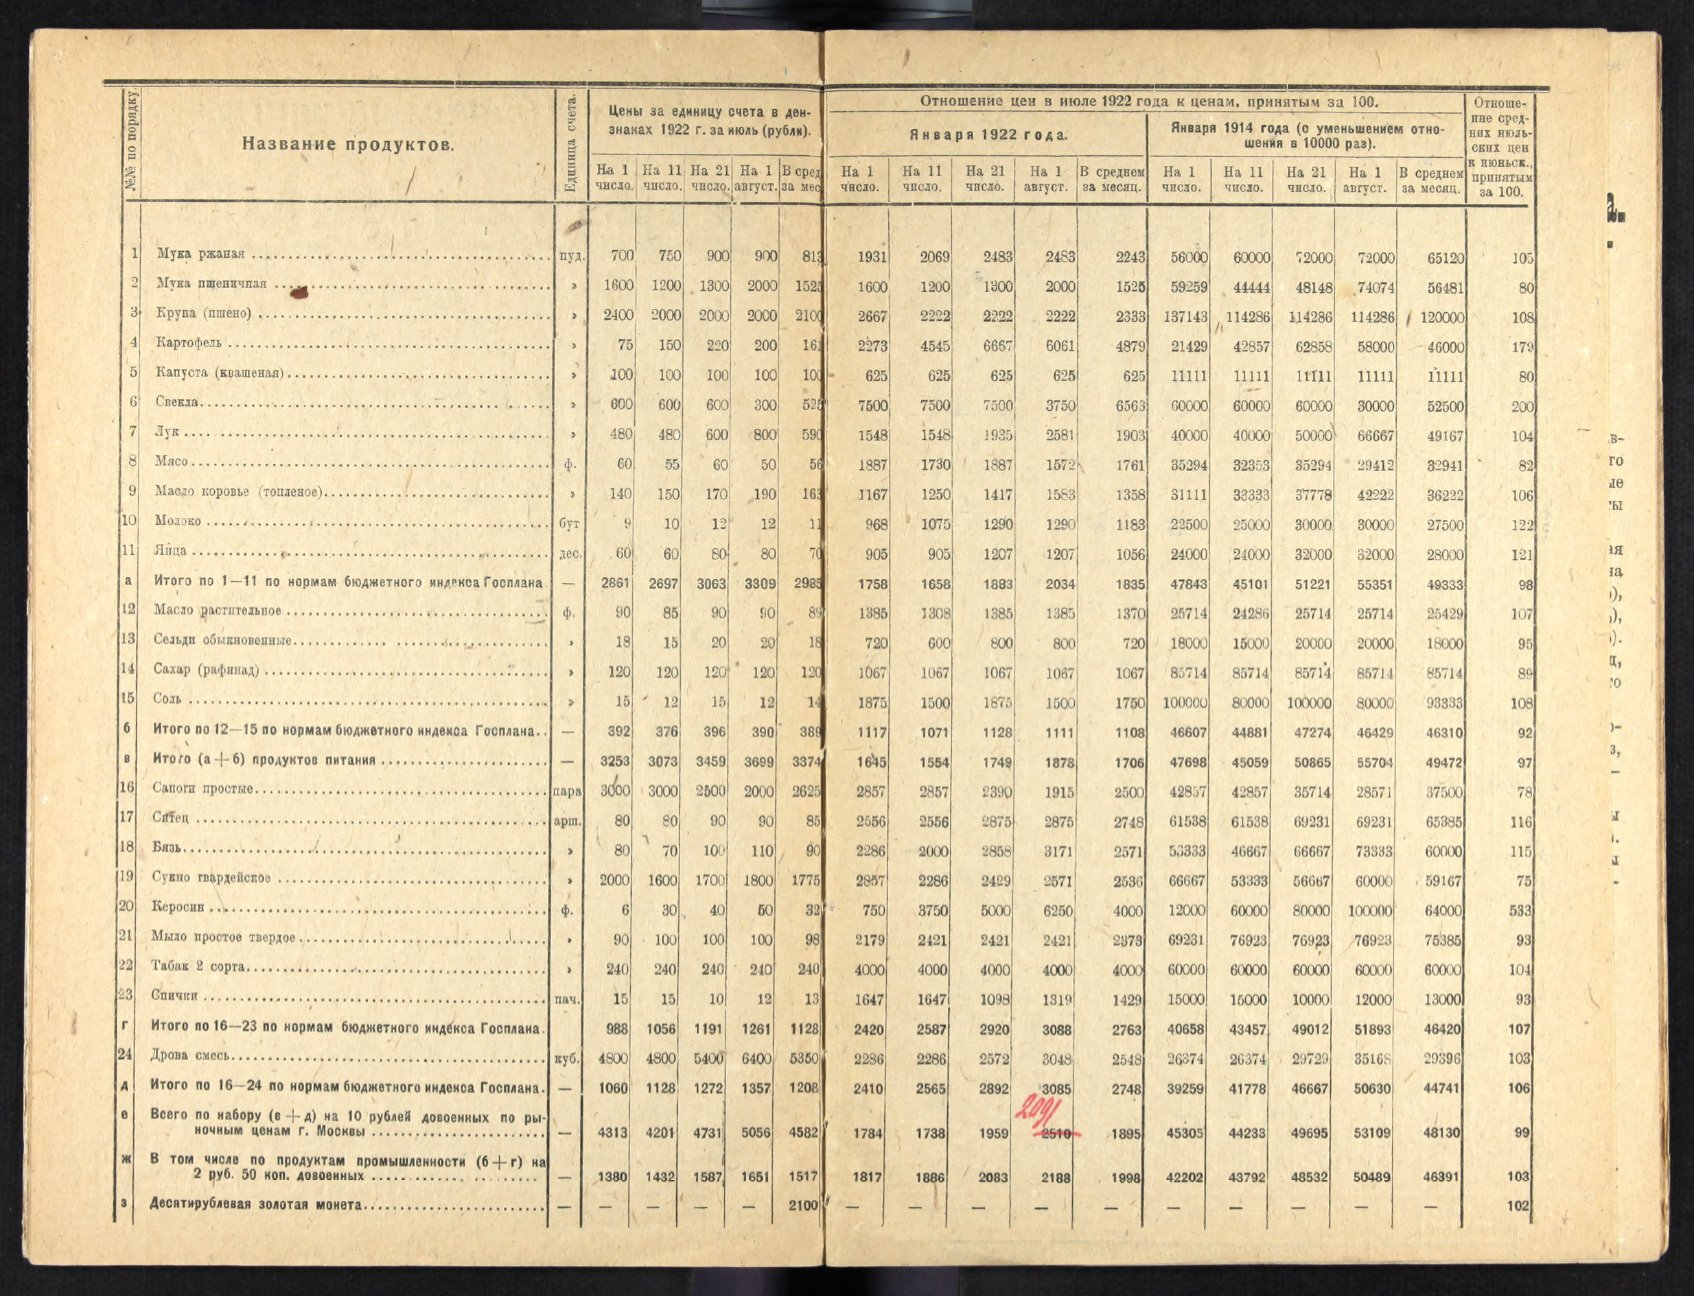 №№ по порядку.
Название продуктов.
Единица счета.
Цены за единицу счета в ден-
знаках 1922 г. за июль (рубли).
Отношение цен в июле 1922 года к ценам, принятым за 100.
Января 1922 года.
Января 1914 года (с уменьшением отно-
шения в 10000 раз).
Отноше-
ние сред-
них июль-
ских цен
к июньск.,
принятым
за 100.
На 1 число. На 11 число. На 21 число. На 1 август. В сред за мес
На 1 число. На 11 число. На 21 число. На 1 август. В среднем за месяц.
На 1 число. На 11 число. На 21 число. На 1 август. В среднем за месяц.
1 Мука ржаная пуд. 700 750 900 900 813 1931 2069 2483 2483 2243 56000 60000 72000 72000 65120 105
2 Мука пшеничная » 1600 1200 1300 2000 1525 1600 1200 1300 2000 1525 59259 44444 48148 74074 56481 80
3 Крупа (пшено) » 2400 2000 2000 2000 2100 2667 2222 2222 2222 2333 137143 114286 114286 114286 120000 108
4 Картофель » 75 150 220 200 161 2273 4545 6667 6061 4879 21429 42857 62858 58000 46000 179
5 Капуста (квашеная) » 100 100 100 100 100 625 625 625 625 625 11111 11111 11111 11111 11111 80
6 Свекла » 600 600 600 300 525 7500 7500 7500 3750 6563 60000 60000 60000 30000 52500 200
7 Лук » 480 480 600 800 590 1548 1548 1935 2581 1903 40000 40000 50000 66667 49167 104
8 Мясо ф. 60 55 60 50 56 1887 1730 1887 1572 1761 35294 32353 35294 29412 32941 82
9 Масло коровье (топленое) » 140 150 170 190 163 1167 1250 1417 1583 1358 31111 33333 37778 42222 36222 106
10 Молоко бут 9 10 12 12 11 968 1075 1290 1290 1183 22500 25000 30000 30000 27500 122
11 Яйца дес. 60 60 80 80 70 905 905 1207 1207 1056 24000 24000 32000 32000 28000 121
а Итого по 1—11 по нормам бюджетного индекса Госплана — 2861 2697 3063 3309 2985 1758 1658 1883 2034 1835 47843 45101 51221 55351 49333 98
12 Масло растительное ф. 90 85 90 90 89 1385 1308 1385 1385 1370 25714 24286 25714 25714 25429 107
13 Сельди обыкновенные » 18 15 20 20 18 720 600 800 800 720 18000 15000 20000 20000 18000 95
14 Сахар (рафинад) » 120 120 120 120 120 1067 1067 1067 1067 1067 85714 85714 85714 85714 85714 89
15 Соль » 15 12 15 12 14 1875 1500 1875 1500 1750 100000 80000 100000 80000 93333 108
б Итого по 12—15 по нормам бюджетного индекса Госплана. — 392 376 396 390 389 1117 1071 1128 1111 1108 46607 44881 47274 46429 46310 92
в Итого (а + б) продуктов питания — 3253 3073 3459 3699 3374 1645 1554 1749 1878 1706 47698 45059 50865 55704 49472 97
16 Сапоги простые пара 3000 3000 2500 2000 2625 2857 2857 2390 1915 2500 42857 42857 35714 28571 37500 78
17 Ситец арш. 80 80 90 90 85 2556 2556 2875 2875 2748 61538 61538 69231 69231 65385 116
18 Бязь » 80 70 100 110 90 2286 2000 2858 3171 2571 53333 46667 66667 73333 60000 115
19 Сукно гвардейское » 2000 1600 1700 1800 1775 2857 2286 2429 2571 2536 66667 53333 56667 60000 59167 75
20 Керосин ф. 6 30 40 50 32 750 3750 5000 6250 4000 12000 60000 80000 100000 64000 533
21 Мыло простое твердое » 90 100 100 100 98 2179 2421 2421 2421 2373 69231 76923 76923 76923 75385 93
22 Табак 2 сорта » 240 240 240 240 240 4000 4000 4000 4000 4000 60000 60000 60000 60000 60000 104
23 Спички пач. 15 15 10 12 13 1647 1647 1098 1319 1429 15000 15000 10000 12000 13000 93
г Итого по 16—23 по нормам бюджетного индекса Госплана. 988 1056 1191 1261 1128 2420 2587 2920 3088 2763 40658 43457 49012 51893 46420 107
24 Дрова смесь куб. 4800 4800 5400 6400 5350 2286 2286 2572 3048 2548 26374 26374 29729 35168 29396 103
д Итого по 16—24 по нормам бюджетного индекса Госплана. — 1060 1128 1272 1357 1208 2410 2565 2892 3085 2748 39259 41778 46667 50630 44741 106
2091
е Всего по набору (в + д) на 10 рублей довоенных по ры-
ночным ценам г. Москвы — 4313 4201 4731 5056 4582 1784 1738 1959 2510 1895 45305 44233 49695 53109 48130 99
ж В том числе по продуктам промышленности (б + г) на
2 руб. 50 коп. довоенных — 1380 1432 1587 1651 1517 1817 1886 2083 2188 1998 42202 43792 48532 50489 46391 103
з Десятирублевая золотая монета — — — — — 2100 — — — — — — — — — — 102